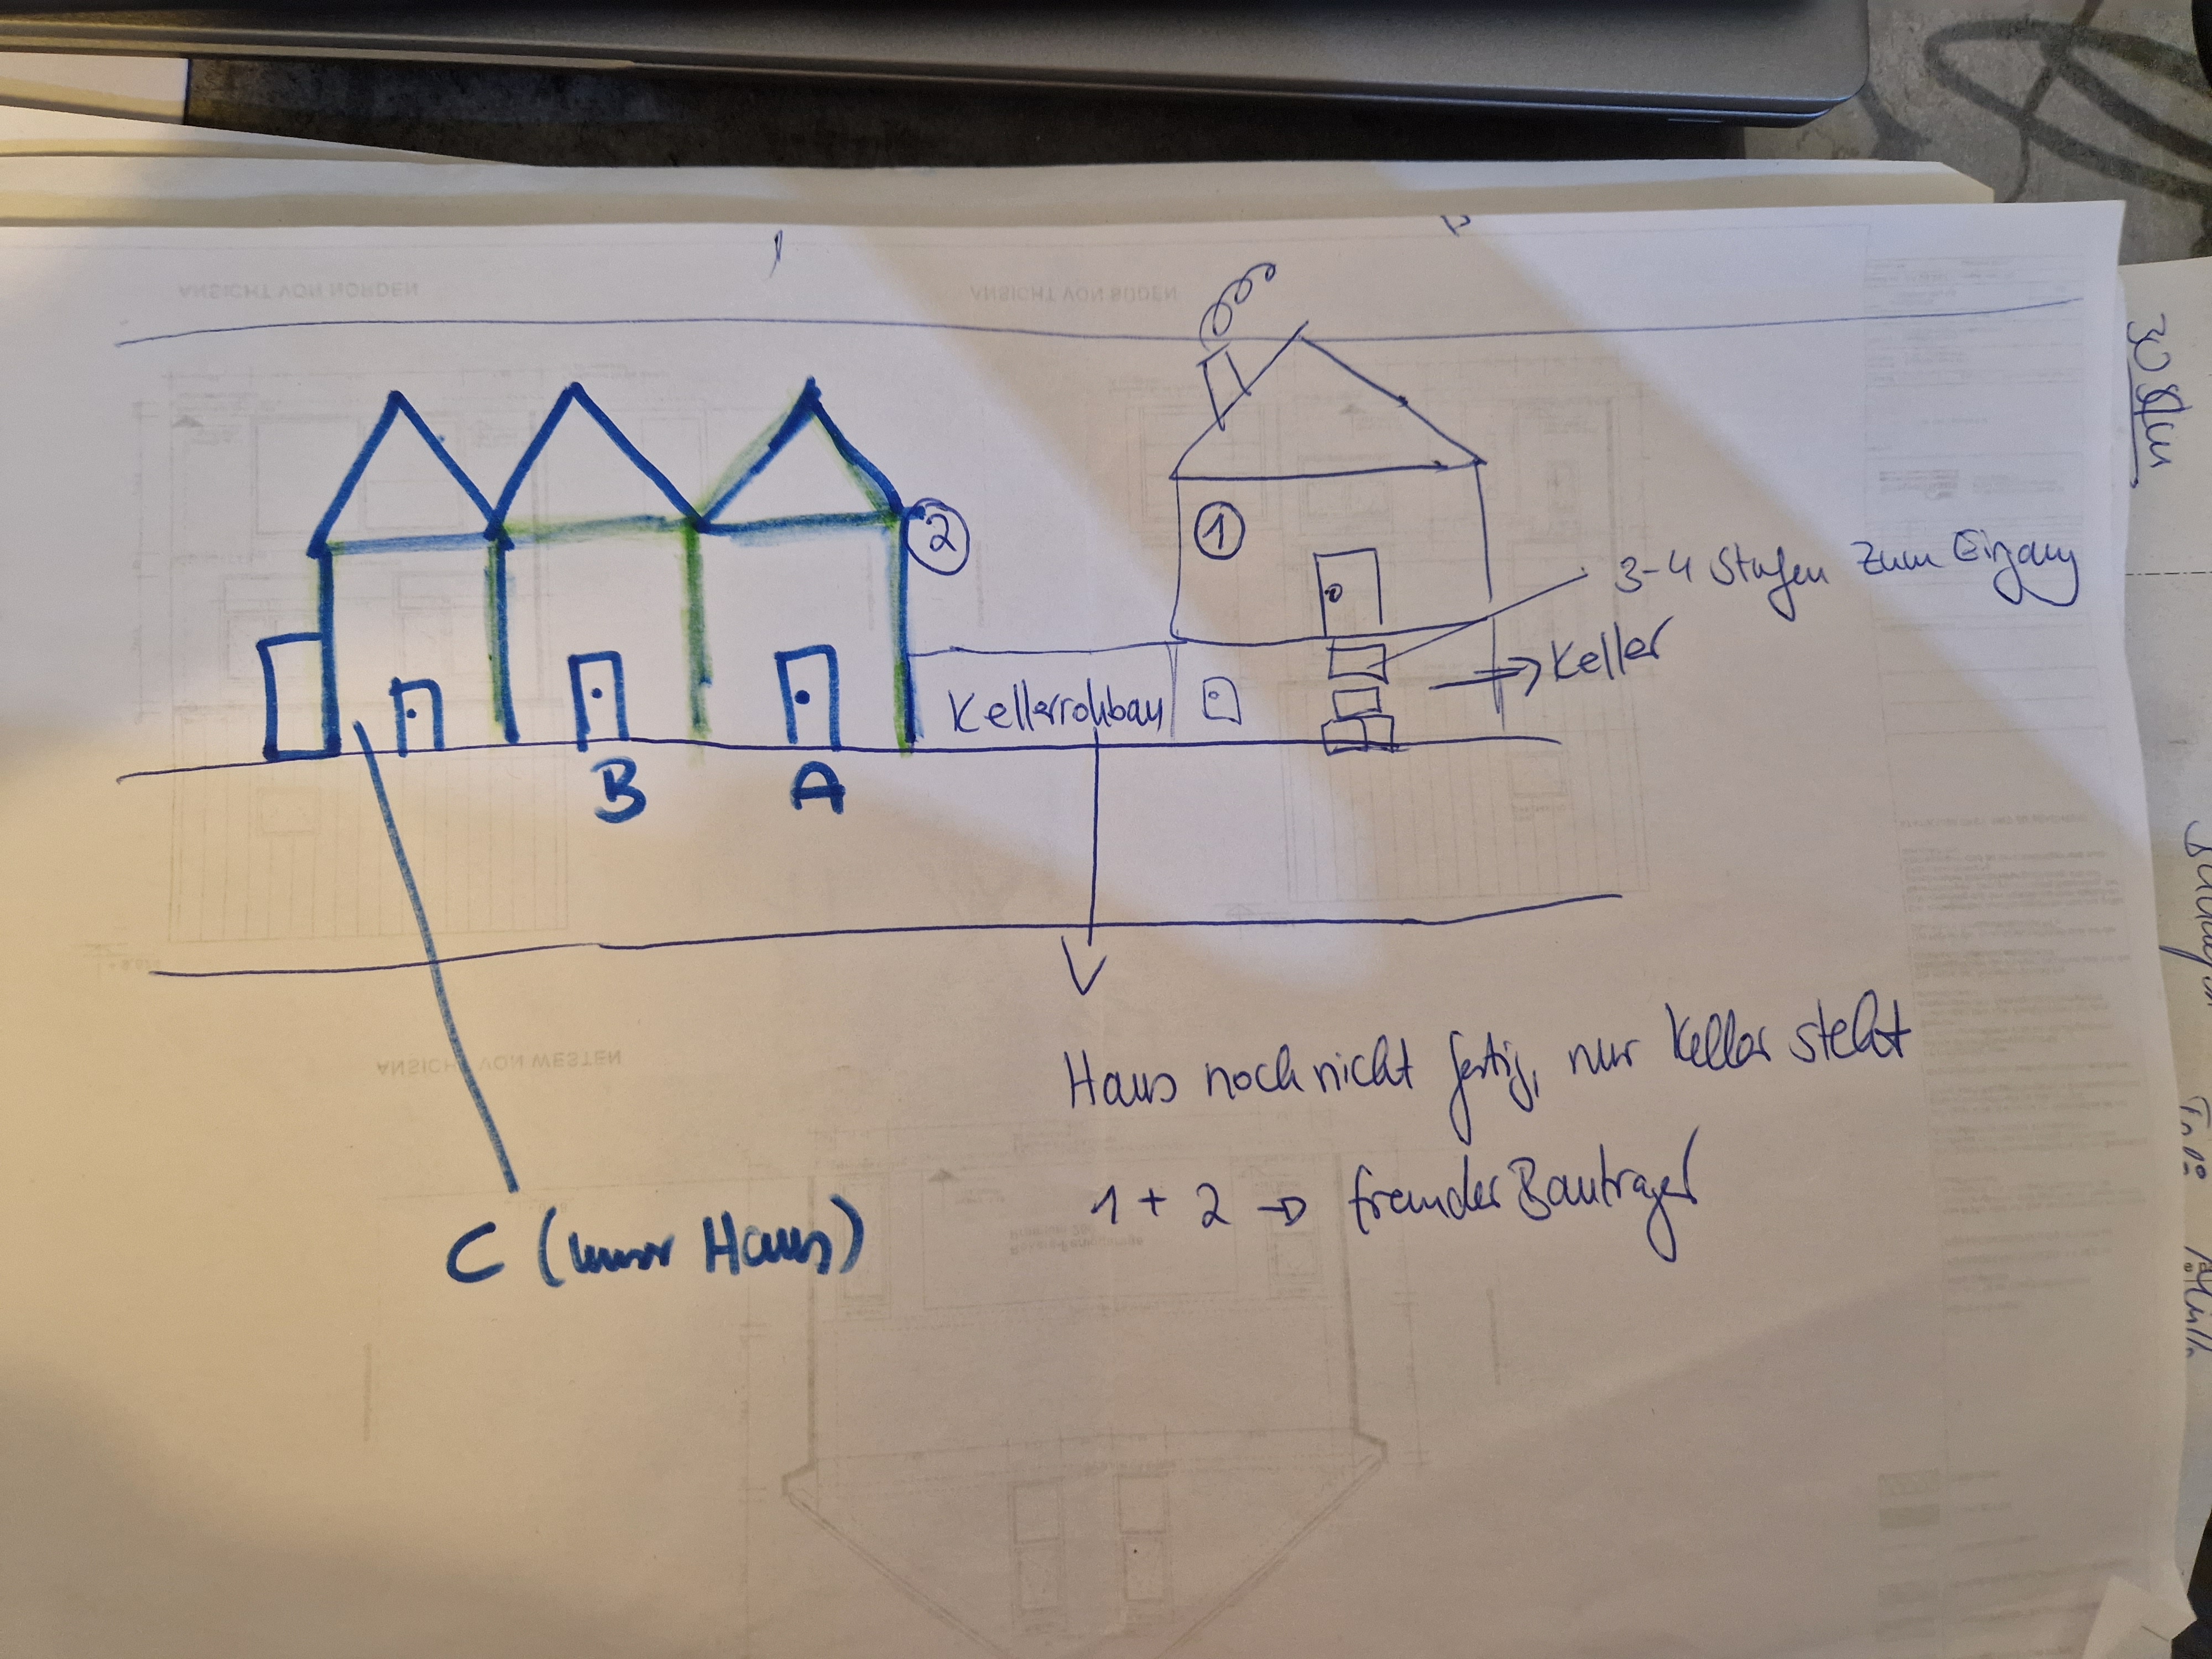 ANSICHT VON NORDEN
ANSICHT VON SÜDEN
2
1
3-4 Stufen zum Eingang
Keller
Kellerrohbau
B
A
Haus noch nicht fertig, nur Keller steht
ANSICHT VON WESTEN
1 + 2 → fremder Bauträger
C (unser Haus)